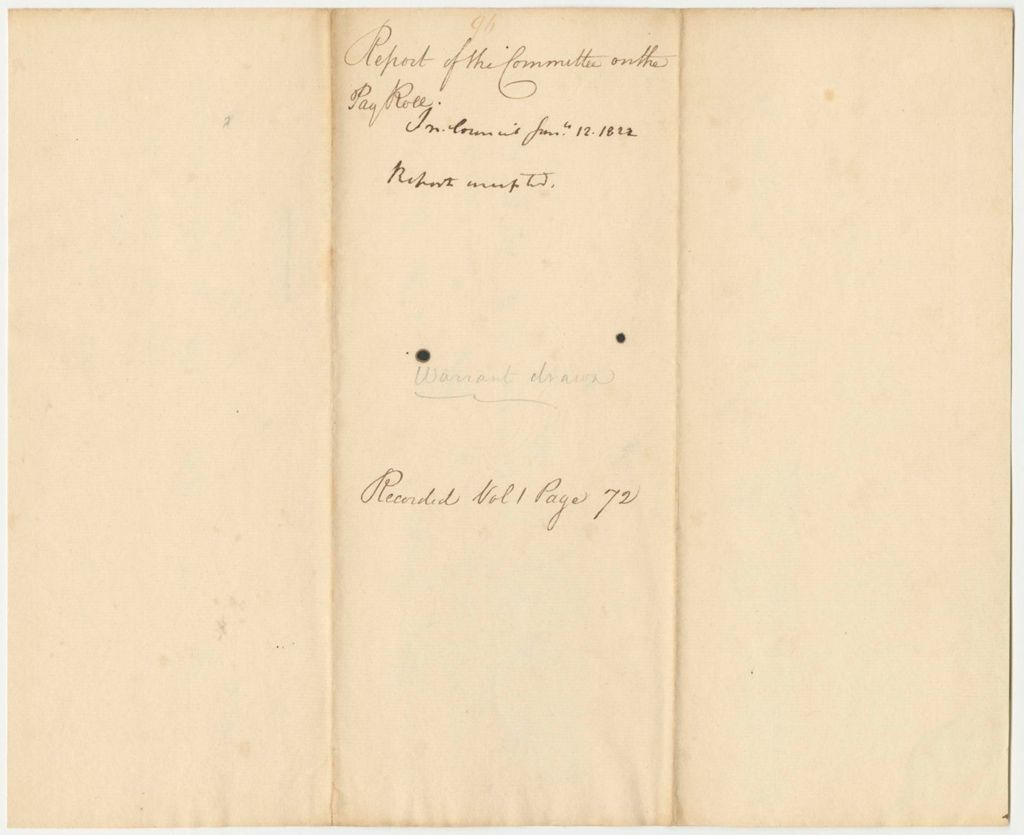 96
Report of the Committee on the
Pay Roll.
In Council Jany. 12. 1822
Report accepted.
Warrant drawn
Recorded Vol 1 Page 72